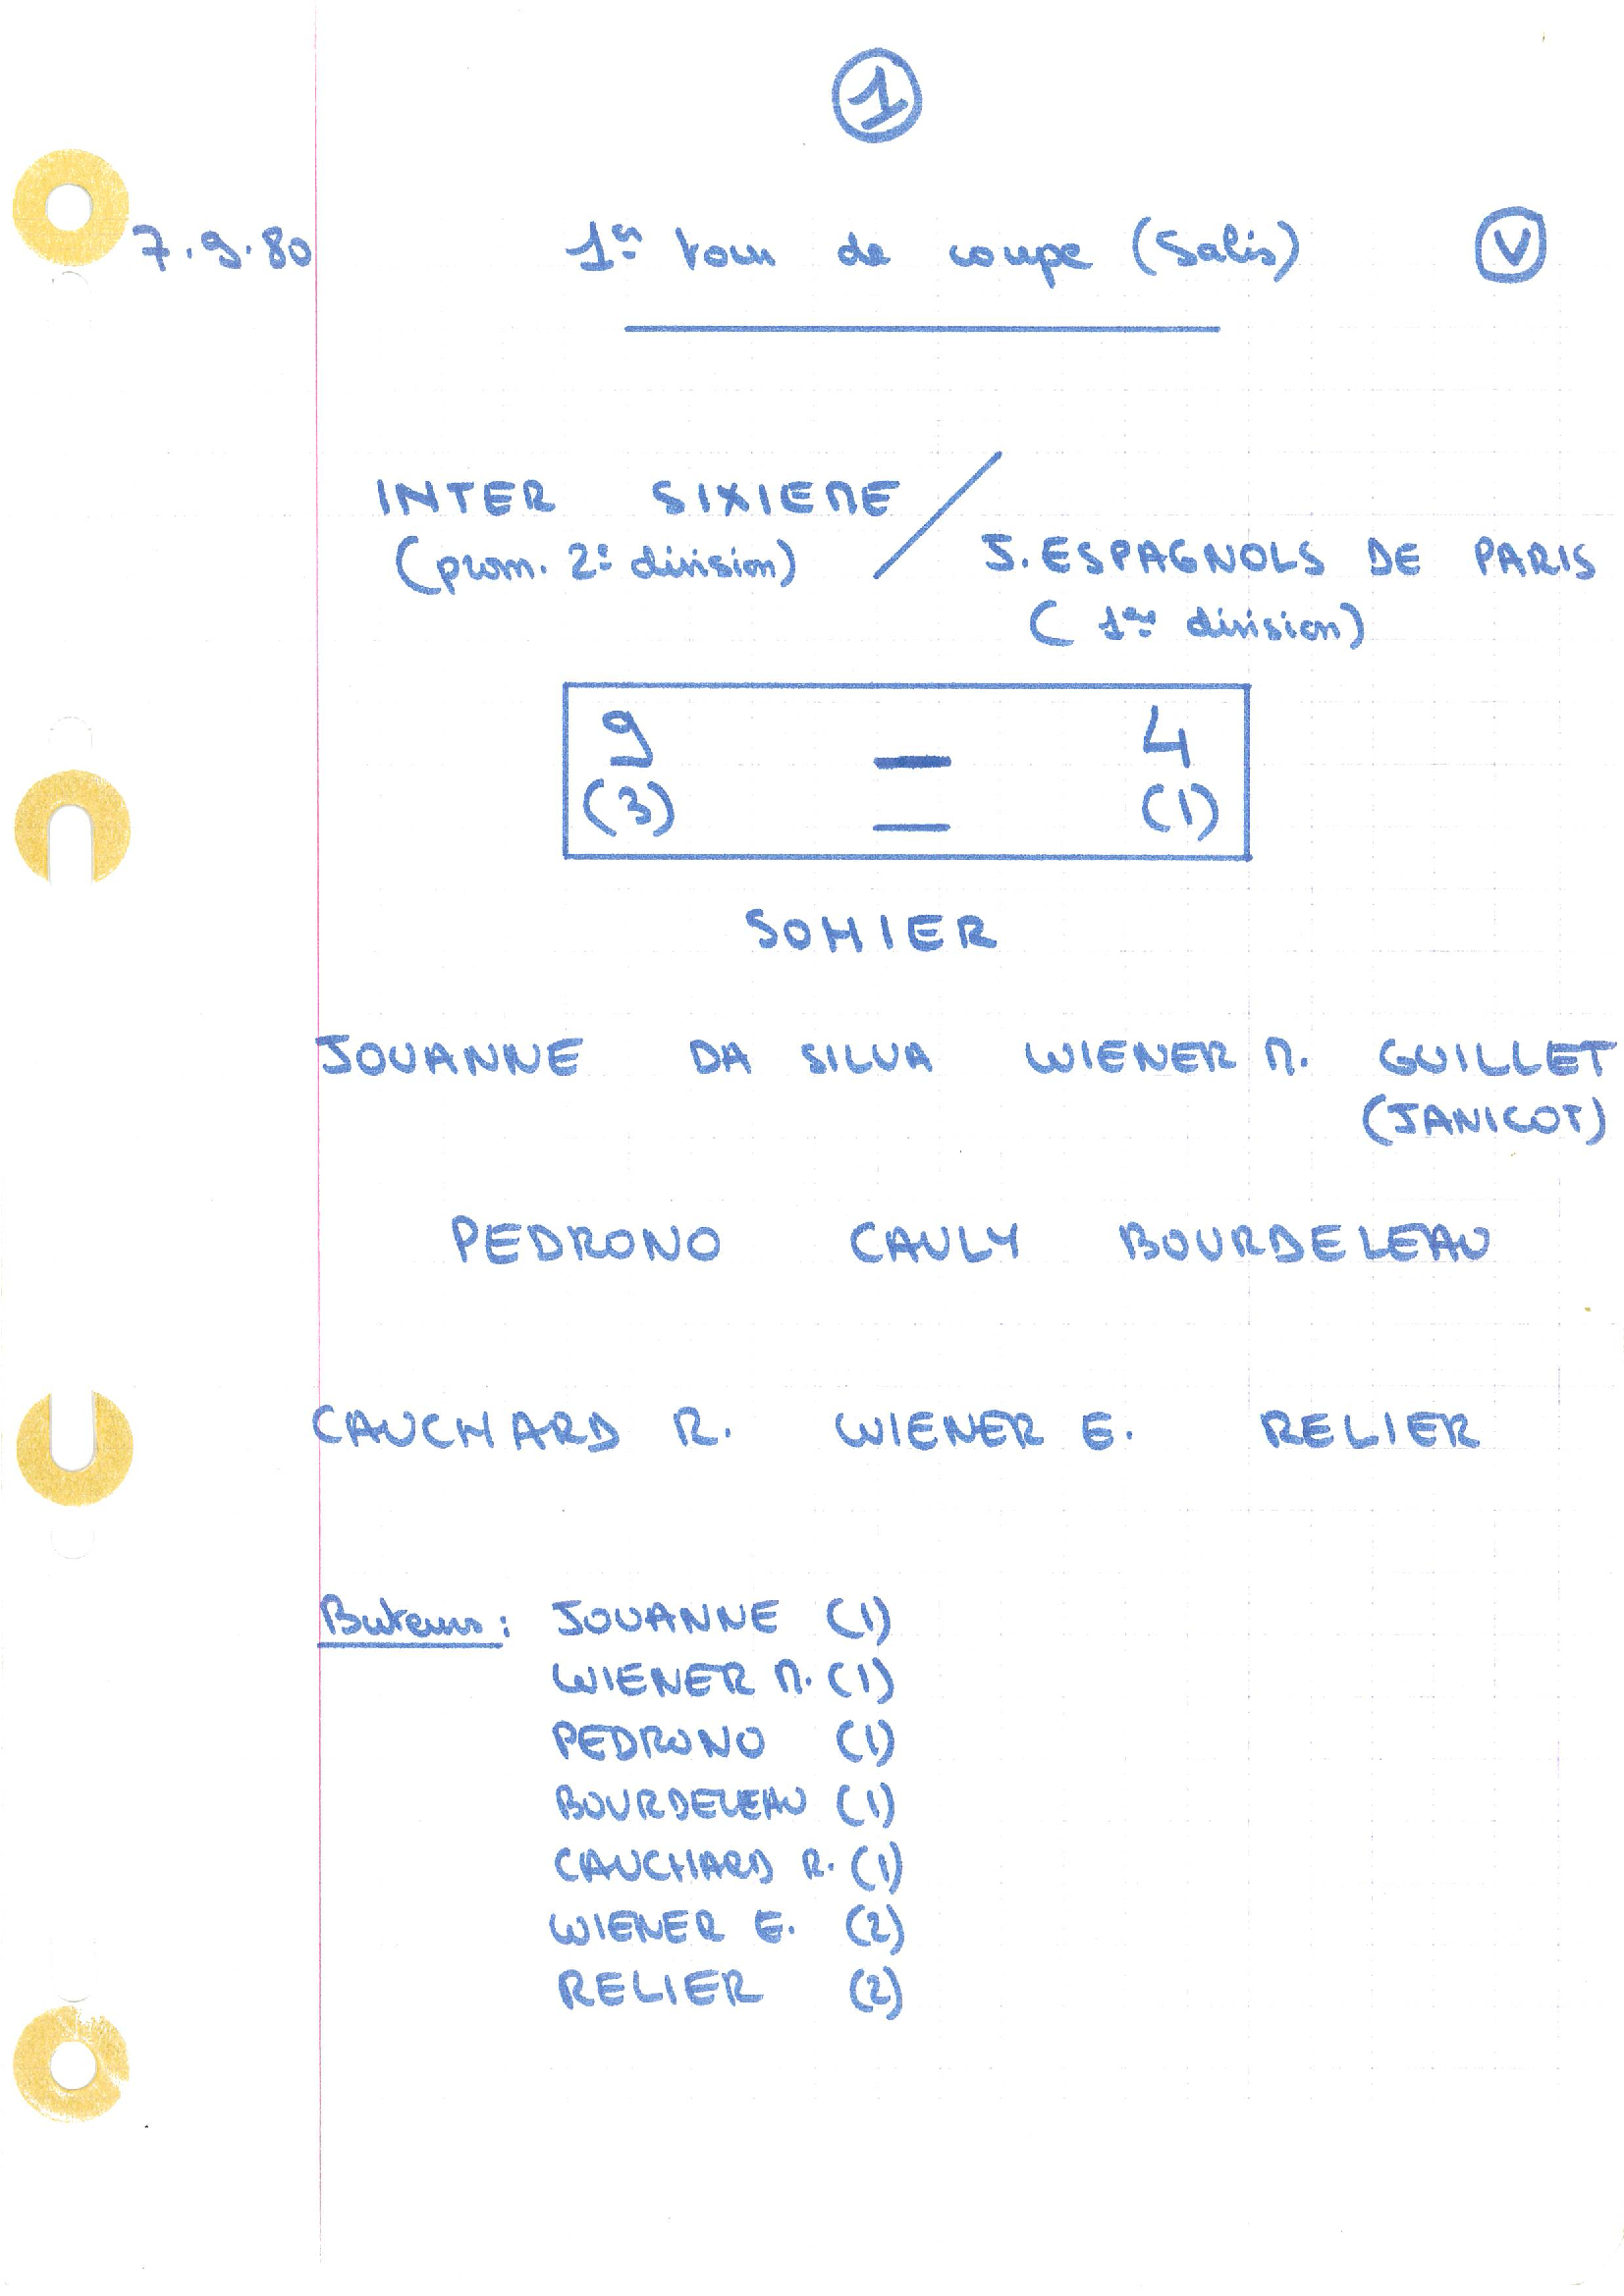 1
7.9.80 1er tour de coupe (Salis) V
INTER SIXIEME /
(prom. 2e division) J. ESPAGNOLS DE PARIS
(1ère division)
9 — 4
(3) — (1)
SOHIER
JOUANNE DA SILVA WIENER M. GUILLET
(JANICOT)
PEDRONO CAULY BOURDELEAU
CAUCHARD R. WIENER E. RELIER
Buteurs : JOUANNE (1)
WIENER M. (1)
PEDRONO (1)
BOURDELEAU (1)
CAUCHARD R. (1)
WIENER E. (2)
RELIER (2)